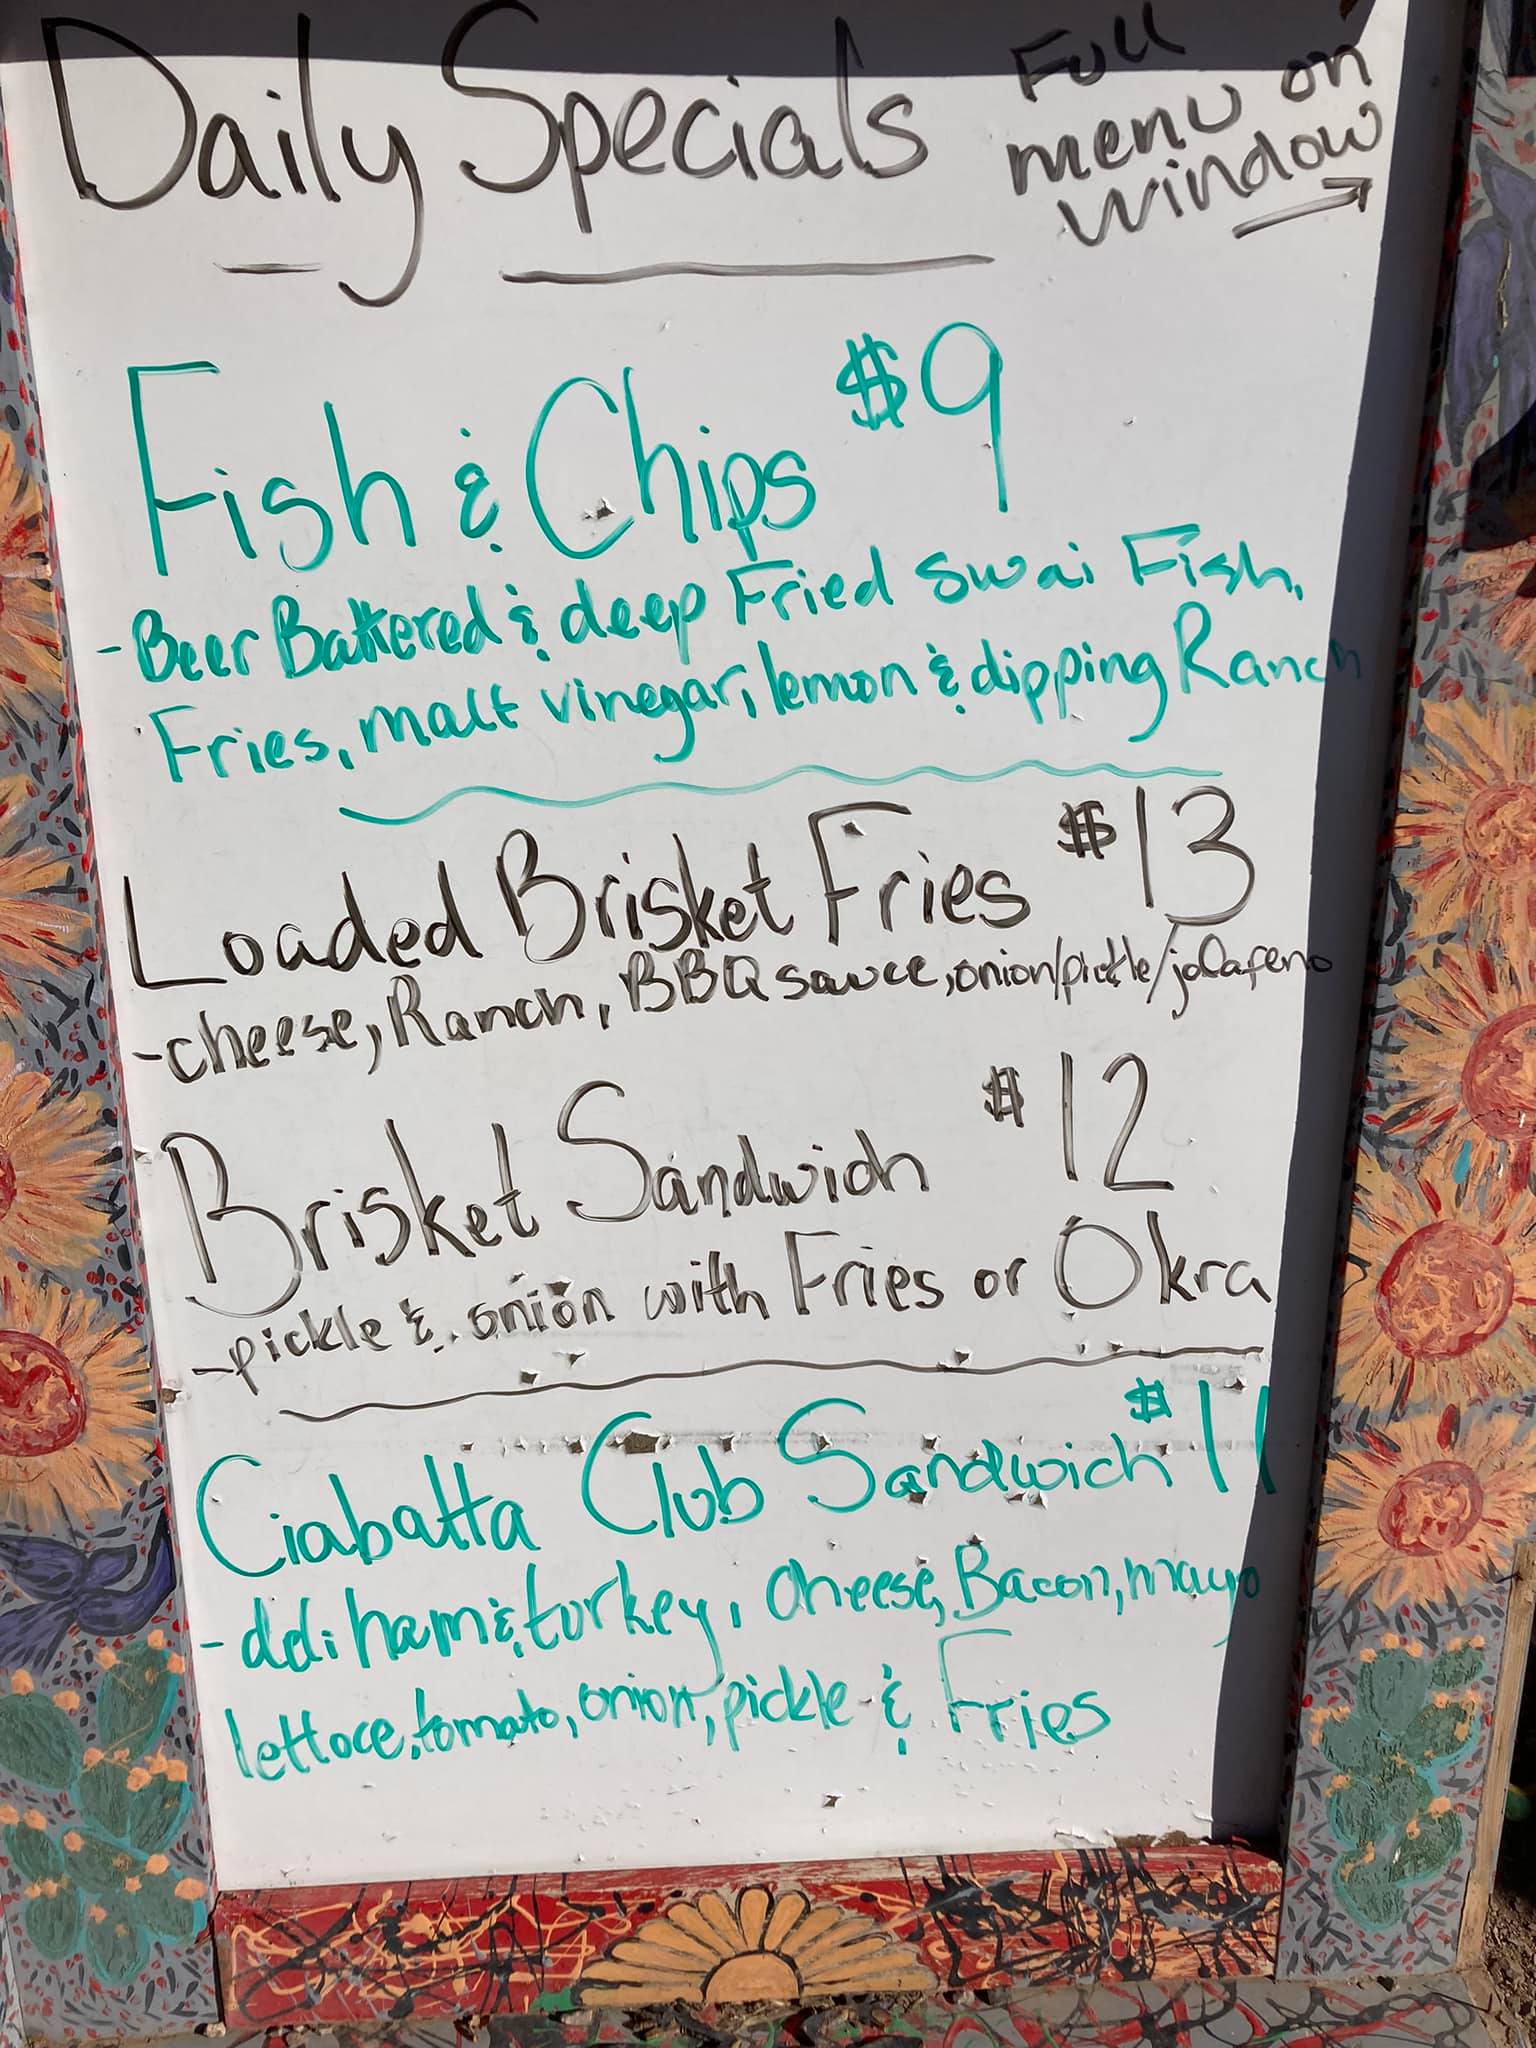 Daily Specials
Full
menu on
window →
Fish & Chips $9
- Beer Battered & deep Fried swai Fish,
Fries, malt vinegar, lemon & dipping Ranch
Loaded Brisket Fries $13
- cheese, Ranch, BBQ sauce, onion/pickle/jalapeno
Brisket Sandwich $12
- pickle & onion with Fries or Okra
Ciabatta Club Sandwich $11
- deli ham & turkey, cheese, Bacon, mayo
lettoce, tomato, onion, pickle & Fries